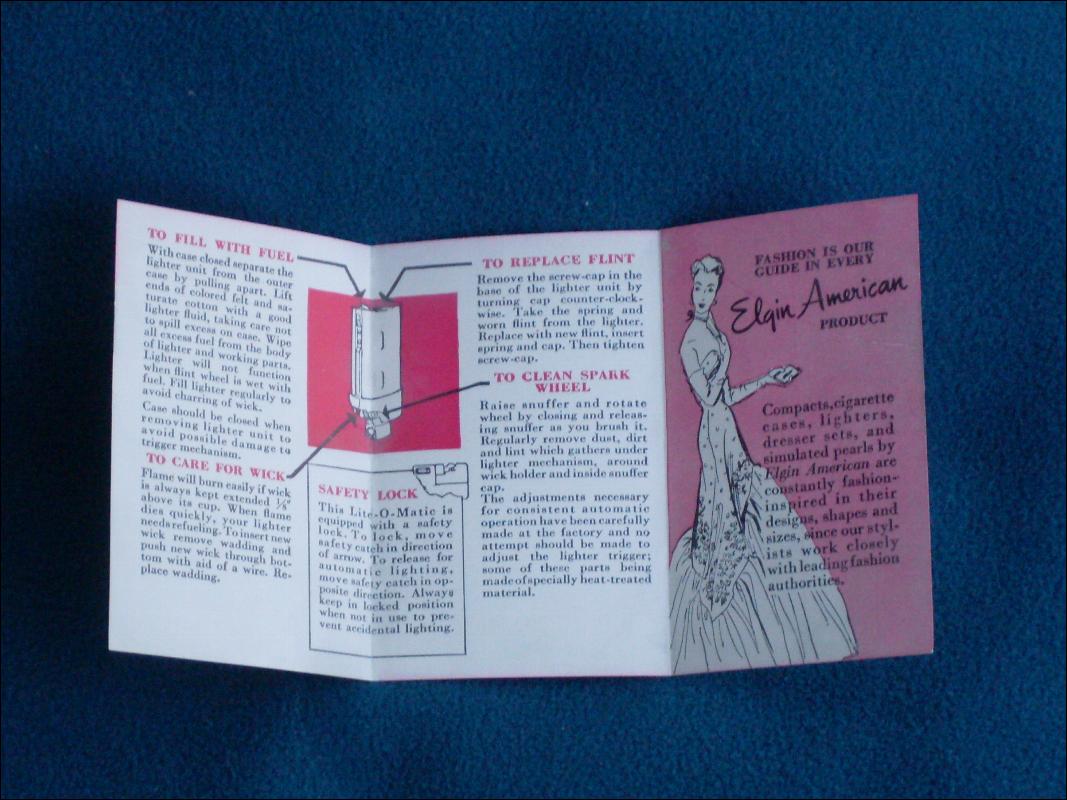 TO FILL WITH FUEL
With case closed separate the
lighter unit from the outer
case by pulling apart. Lift
ends of colored felt and sa-
turate cotton with a good
lighter fluid, taking care not
to spill excess on case. Wipe
all excess fuel from the body
of lighter and working parts.
Lighter will not function
when flint wheel is wet with
fuel. Fill lighter regularly to
avoid charring of wick.
Case should be closed when
removing lighter unit to
avoid possible damage to
trigger mechanism.
TO CARE FOR WICK
Flame will burn easily if wick
is always kept extended ⅛"
above its cup. When flame
dies quickly, your lighter
needs refueling. To insert new
wick remove wadding and
push new wick through bot-
tom with aid of a wire. Re-
place wadding.
SAFETY LOCK
This Lite-O-Matic is
equipped with a safety
lock. To lock, move
safety catch in direction
of arrow. To release for
automatic lighting,
move safety catch in op-
posite direction. Always
keep in locked position
when not in use to pre-
vent accidental lighting.
TO REPLACE FLINT
Remove the screw-cap in the
base of the lighter unit by
turning cap counter-clock-
wise. Take the spring and
worn flint from the lighter.
Replace with new flint, insert
spring and cap. Then tighten
screw-cap.
TO CLEAN SPARK
WHEEL
Raise snuffer and rotate
wheel by closing and releas-
ing snuffer as you brush it.
Regularly remove dust, dirt
and lint which gathers under
lighter mechanism, around
wick holder and inside snuffer
cap.
The adjustments necessary
for consistent automatic
operation have been carefully
made at the factory and no
attempt should be made to
adjust the lighter trigger;
some of these parts being
made of specially heat-treated
material.
FASHION IS OUR
GUIDE IN EVERY
Elgin American
PRODUCT
Compacts, cigarette
cases, lighters,
dresser sets, and
simulated pearls by
Elgin American are
constantly fashion-
inspired in their
designs, shapes and
sizes, since our styl-
ists work closely
with leading fashion
authorities.